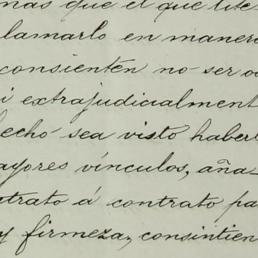 mas que el que lite
lamarlo en manera
consienten no ser o
i extrajudicialment
echo sea visto haber
ayores vínculos, aña
trato á contrato pa
y firmeza, consintien